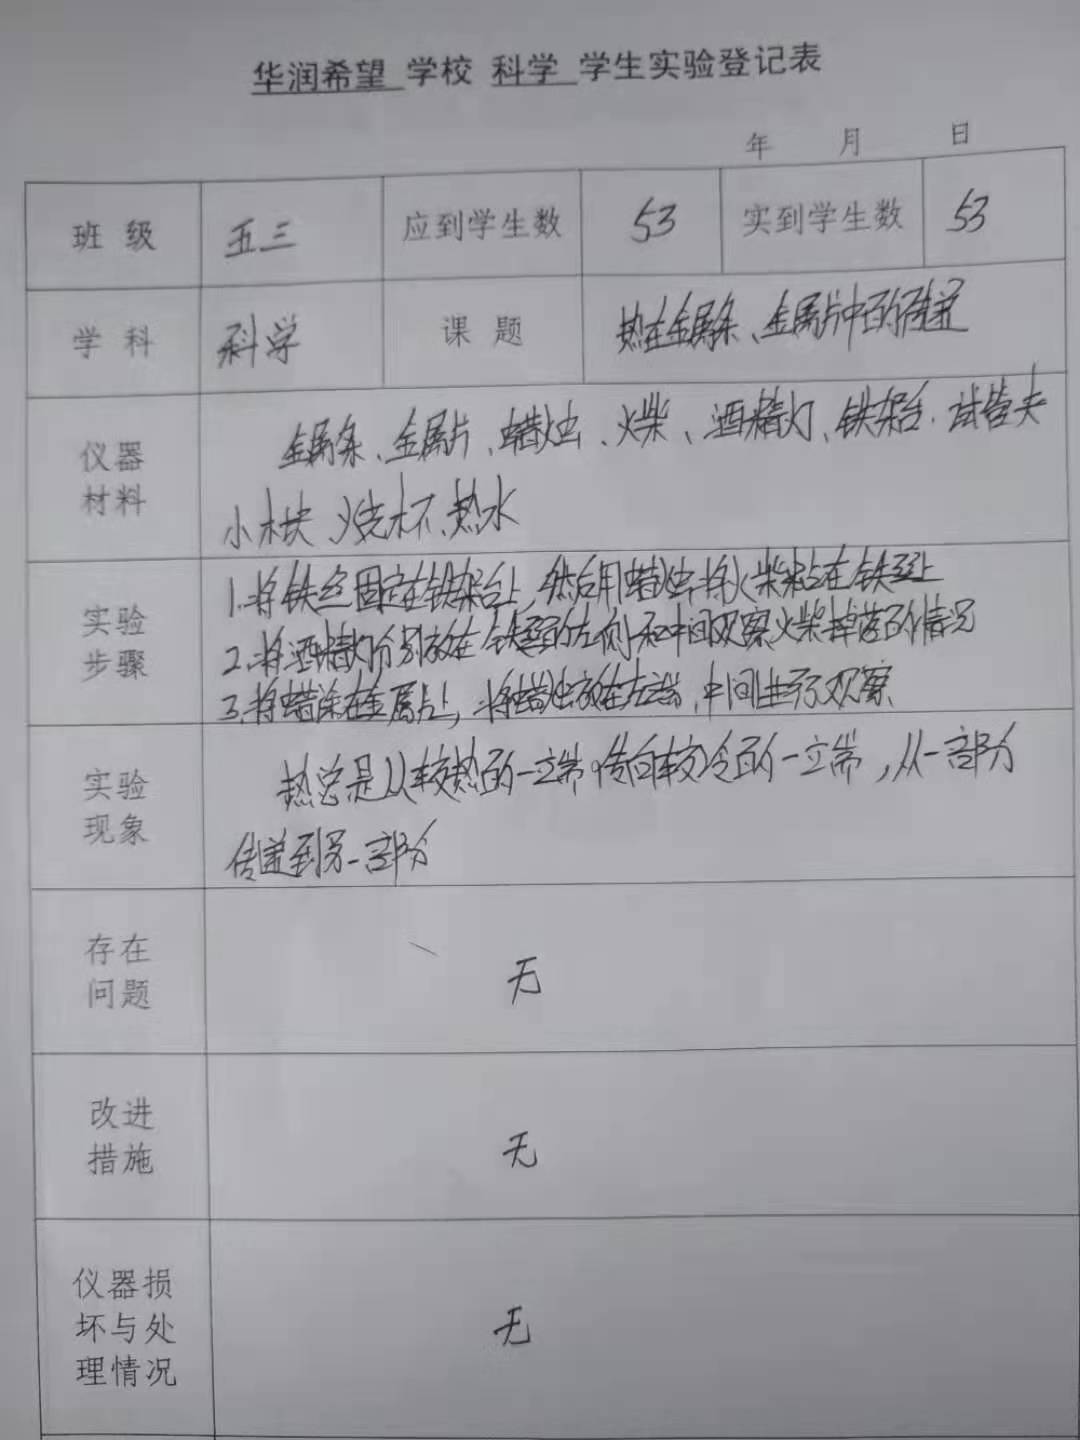 华润希望 学校 科学 学生实验登记表
年 月 日
班 级 五三 应到学生数 53 实到学生数 53
学 科 科学 课 题 热在金属条、金属片中的传递
仪器
材料
金属条、金属片、蜡烛、火柴、酒精灯、铁架台、试管夹
小木块、烧杯、热水
实验
步骤
1.将铁丝固定在铁架台上,然后用蜡烛将火柴粘在铁丝上
2.将酒精灯分别放在铁丝的左侧和中间观察火柴掉落的情况
3.将蜡涂在金属片上,将蜡烛放在左端,中间进行观察
实验
现象
热总是从较热的一端传向较冷的一端,从一部分
传递到另一部分
存在
问题
无
改进
措施
无
仪器损
坏与处
理情况
无